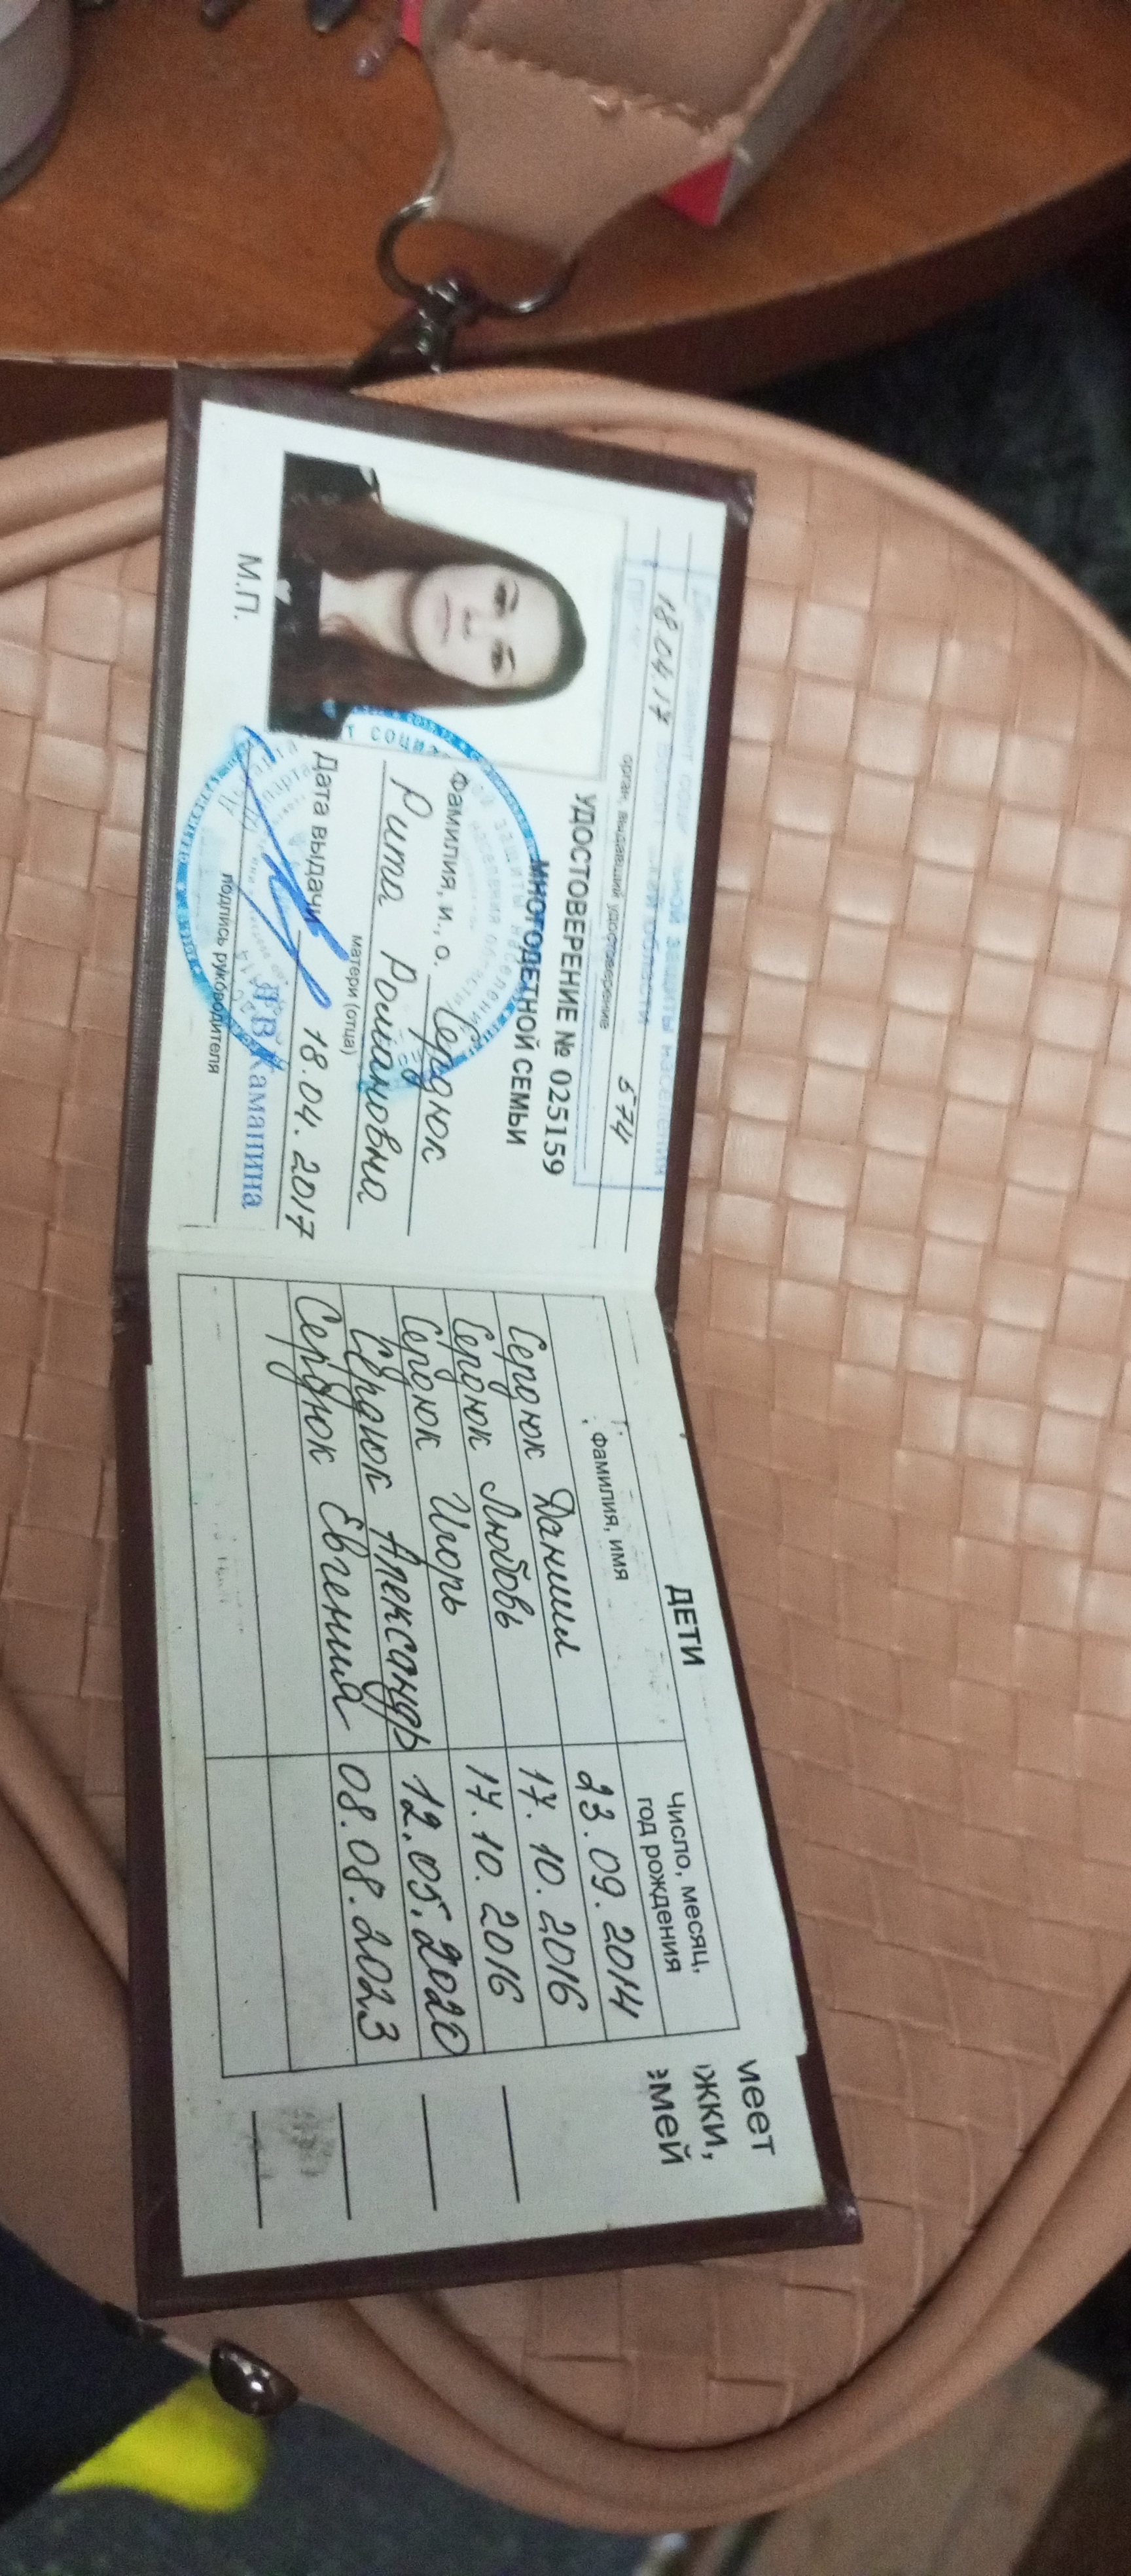 18.04.17 574
орган, выдавший удостоверение
УДОСТОВЕРЕНИЕ № 025159
МНОГОДЕТНОЙ СЕМЬИ
Фамилия, и., о. Сердюк
Рита Романовна
матери (отца)
Дата выдачи 18.04.2017
Каманина
подпись руководителя
М.П.
ДЕТИ
Фамилия, имя
Число, месяц,
год рождения
Сердюк Даниил 23.09.2014
Сердюк Любовь 17.10.2016
Сердюк Игорь 17.10.2016
Сердюк Александр 12.05.2020
Сердюк Евгения 08.08.2023
меет
жки,
емей